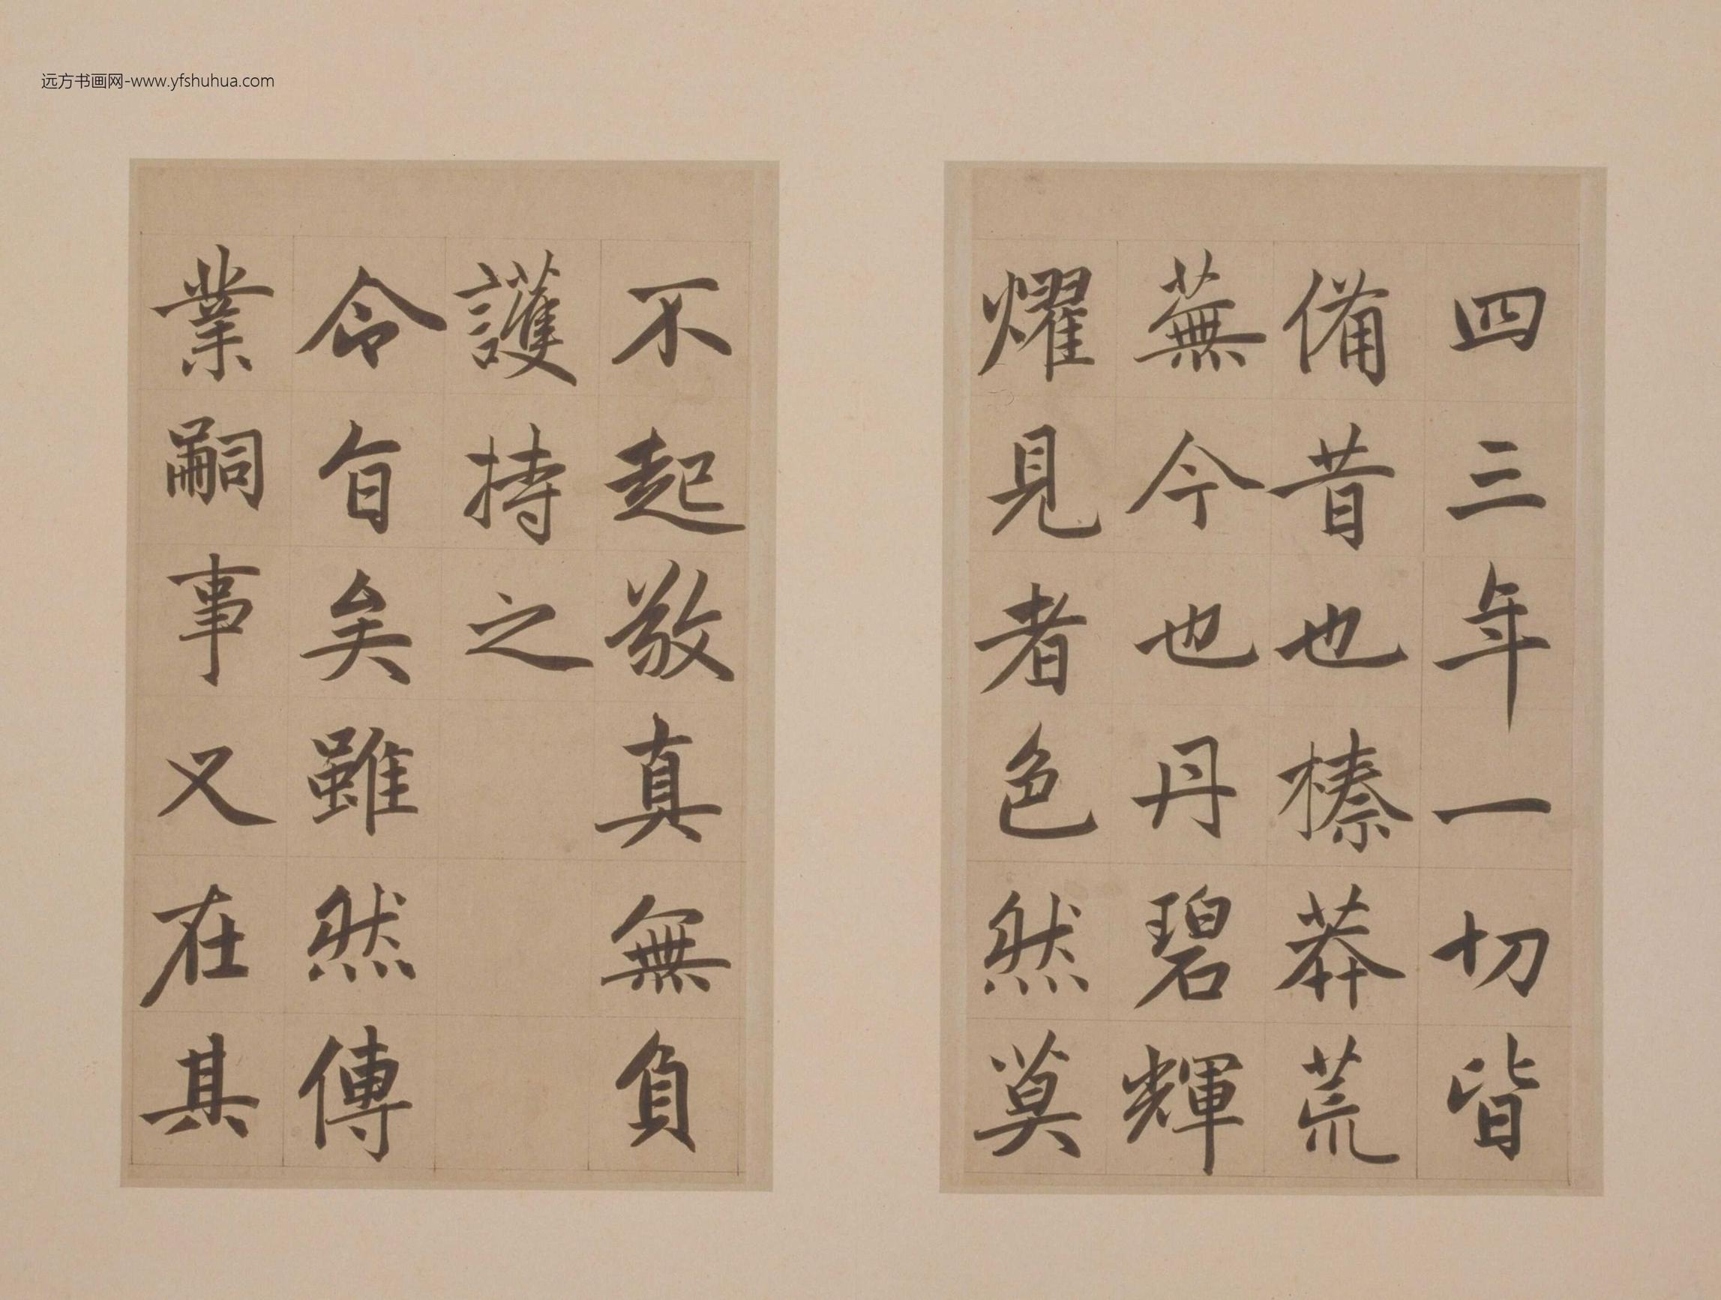 远方书画网-www.yfshuhua.com
四三年一切皆
備昔也榛莽荒
蕪今也丹碧輝
燿見者色然莫
不起敬真無負
護持之
令旨矣雖然傳
業嗣事又在其